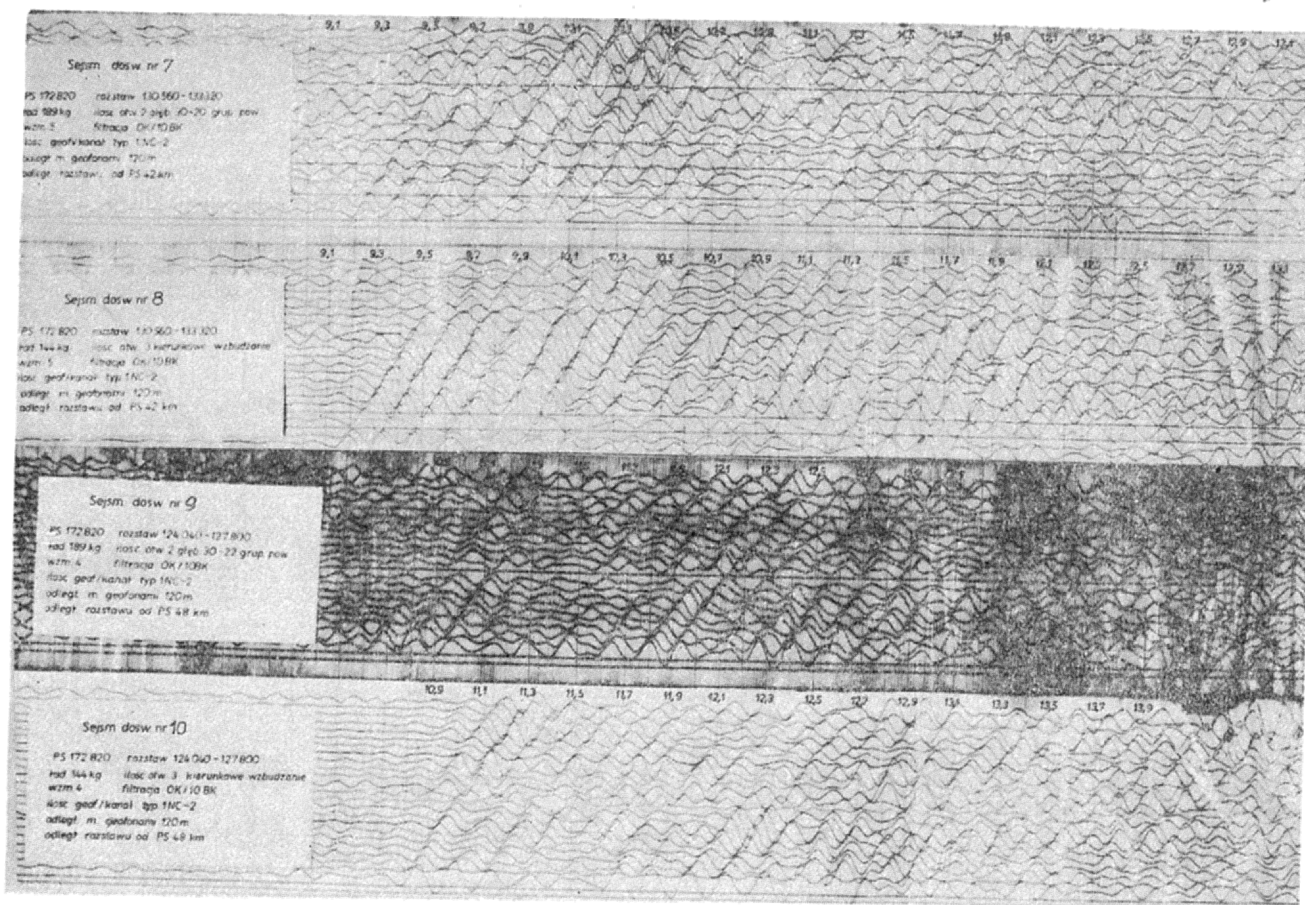 9,1 9,3 9,5 9,7 9,9 10,1 10,9 11,1 11,3 11,5 11,7 11,9 12,1 12,3 12,5 12,7 12,9
Sejsm. dosw nr 7
PS 172 820 rozstaw 130 560-133 320
ład 189 kg ilosc otw 2 głęb 30-20 grup pow
wzm 5 filtracja OK/10BK
ilosc geof/kanał typ 1NC-2
odległ m geofonami 120 m
odległ rozstawu od PS 42 km
9,1 9,3 9,5 9,7 9,9 10,1 10,3 10,5 10,7 10,9 11,1 11,3 11,5 11,7 11,9 12,1 12,5 12,7 12,9 13,1
Sejsm dosw nr 8
PS 172 820 rozstaw 130 560-133 320
ład 144 kg ilosc otw 3 kierunkowe wzbudzanie
wzm 5 filtracja OK/10BK
ilosc geof/kanał typ 1NC-2
odległ m geofonami 120 m
odległ rozstawu od PS 42 km
12,1 12,3 12,5
Sejsm. dosw nr 9
PS 172 820 rozstaw 124 040-127 800
ład 189 kg ilosc otw 2 głęb 30-22 grup pow
wzm 4 filtracja OK/10BK
ilosc geof/kanał typ 1NC-2
odległ m geofonami 120 m
odległ rozstawu od PS 48 km
10,9 11,1 11,3 11,5 11,7 11,9 12,1 12,3 12,5 12,7 12,9 13,1 13,3 13,5 13,7 13,9
Sejsm dosw nr 10
PS 172 820 rozstaw 124 040-127 800
ład 144 kg ilość otw 3 kierunkowe wzbudzanie
wzm 4 filtracja OK/10 BK
ilość geof/kanał typ 1NC-2
odległ m geofonami 120 m
odległ rozstawu od PS 48 km